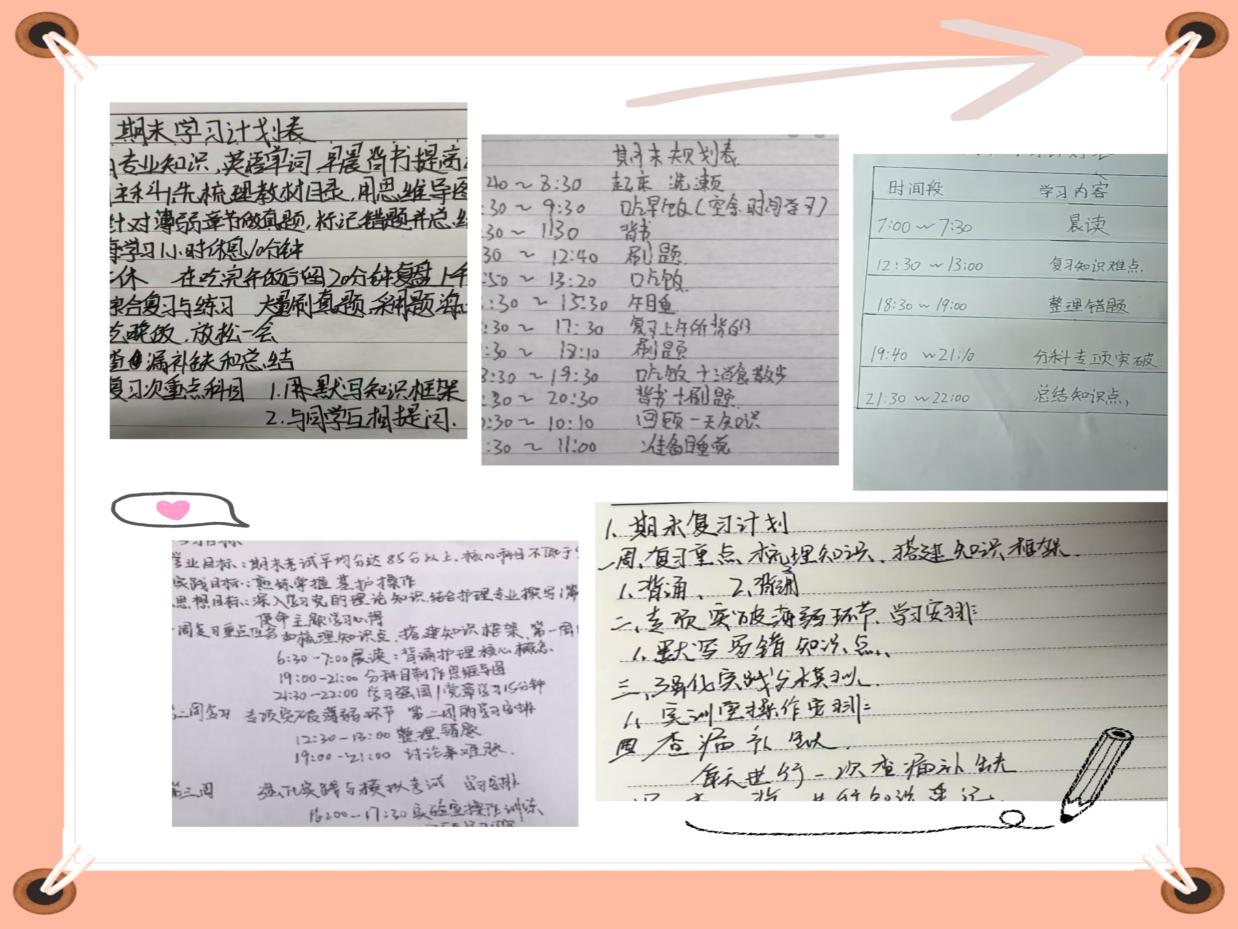 期末学习计划表
专业知识,英语单词 早晨背书提高
主科1先梳理教材目录,用思维导图
针对薄弱章节做真题,标记错题并总结
每学习1小时休息10分钟
休 在吃完午饭后留20分钟复盘上午
综合复习与练习 大量刷真题
放松一会
查漏补缺和总结
复习次重点科目 1.用默写知识框架
2.与同学互相提问.
期末规划表
40～8:30 起床 洗漱
:30～9:30 吃早饭(空余时间学习)
:30～1130 背书
30～12:40 刷题
:50～13:20 吃饭
:30～15:30 午睡
:30～17:30 复习上午所背的
:30～18:10 刷题
8:30～19:30 吃饭+消食散步
:30～20:30 背书+刷题
0:30～10:10 回顾一天知识
:30～11:00 准备睡觉
时间段 学习内容
7:00～7:30 晨读
12:30～13:00 复习知识难点.
18:30～19:00 整理错题
19:40～21:10 分科专项突破
21:30～22:00 总结知识点,
学业目标:期末考试平均分达85分以上,核心科目不低于
实践目标:熟练掌握基护操作
思想目标:深入学习党的理论知识,结合护理专业撰写1篇
使命主题学习心得
一周复习重点任务 梳理知识点,搭建知识框架,第一周
6:30-7:00晨读:背诵护理核心概念.
19:00-21:00 分科目制作思维导图
21:30-22:00 学习强国/党章学习15分钟
第二周复习 专项突破薄弱环节 第二周的学习安排
12:30-13:00 整理错题
19:00-21:00 讨论难题.
第三周 强化实践与模拟考试 学习安排
16:00-17:30实验室操作训练
1.期末复习计划
一周.复习重点.梳理知识、搭建知识框架.
1.背诵、2.背诵
二、专项突破薄弱环节.学习安排
1.默写易错知识点、
三、强化实践与模拟、
1.实训室操作安排:
四 查漏补缺.
每天进行一次查漏补缺